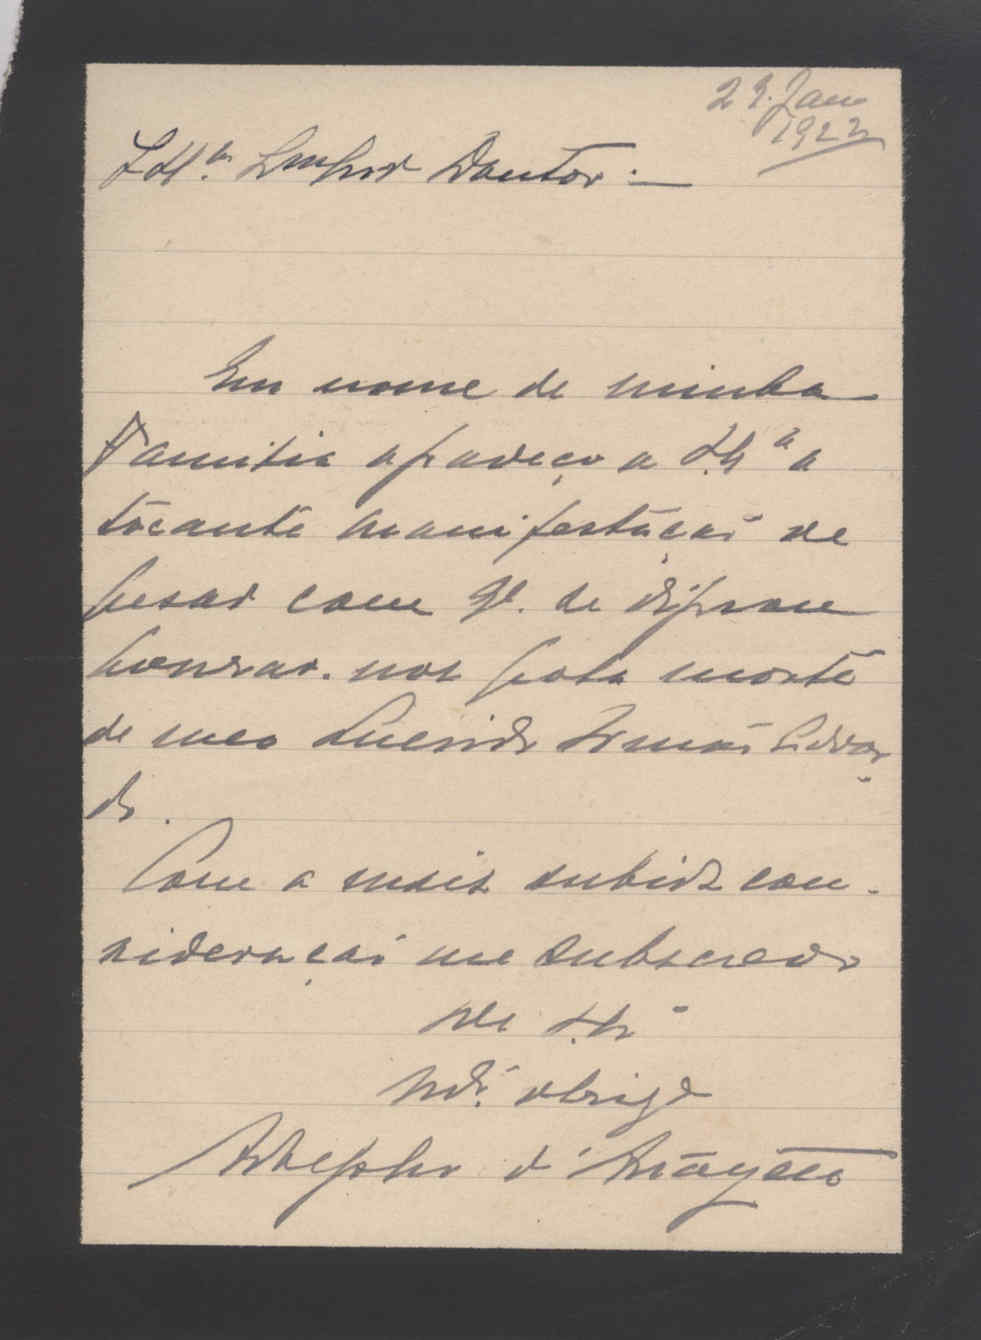 29. Jan
1922
Ill.mo Senhor Doutor: —
Em nome de minha
Familia agradeço a V. Ex.ª a
tocante manifestação de
pesar com q. se dignou
honrar-nos pela morte
de meo querido Irmão Edvar-
do.
Com a mais subida con-
sideração me subscrevo
De V. Ex.ª
Mt.º obrigd.º
Adolpho d'Aragão